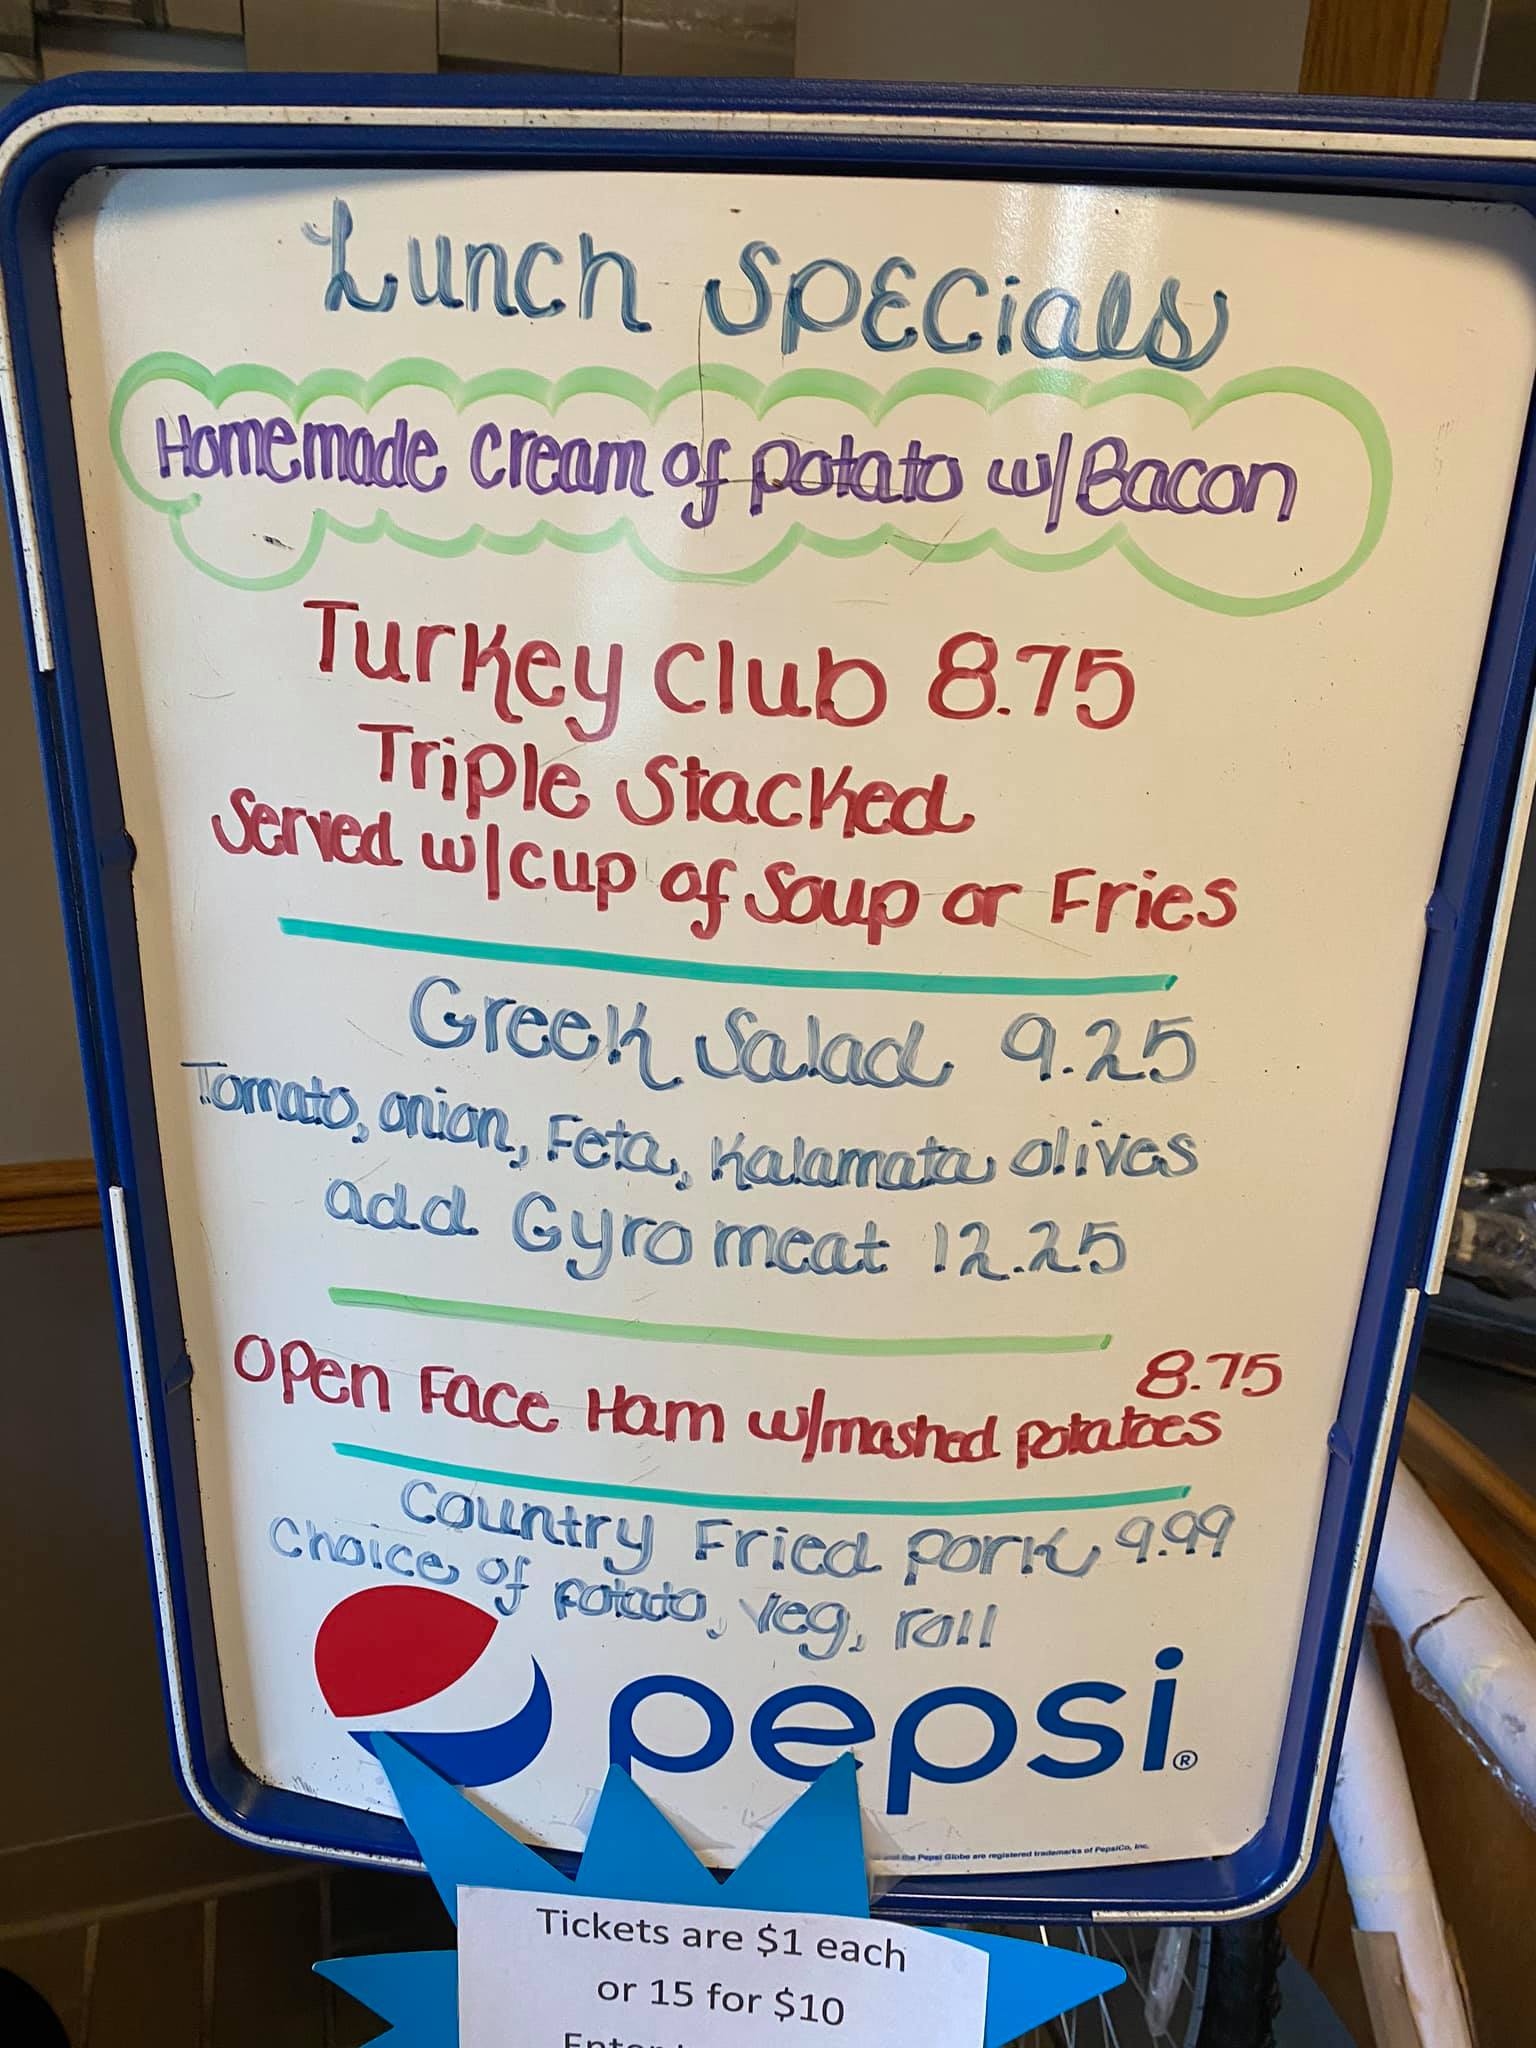 Lunch Specials
Homemade cream of potato w/Bacon
Turkey Club 8.75
Triple Stacked
Served w/cup of Soup or Fries
Greek Salad 9.25
Tomato, onion, Feta, Kalamata olives
add Gyro meat 12.25
8.75
Open Face Ham w/mashed potatoes
Country Fried Pork 9.99
Choice of potato, veg, roll
pepsi®
the Pepsi Globe are registered trademarks of PepsiCo, Inc.
Tickets are $1 each
or 15 for $10